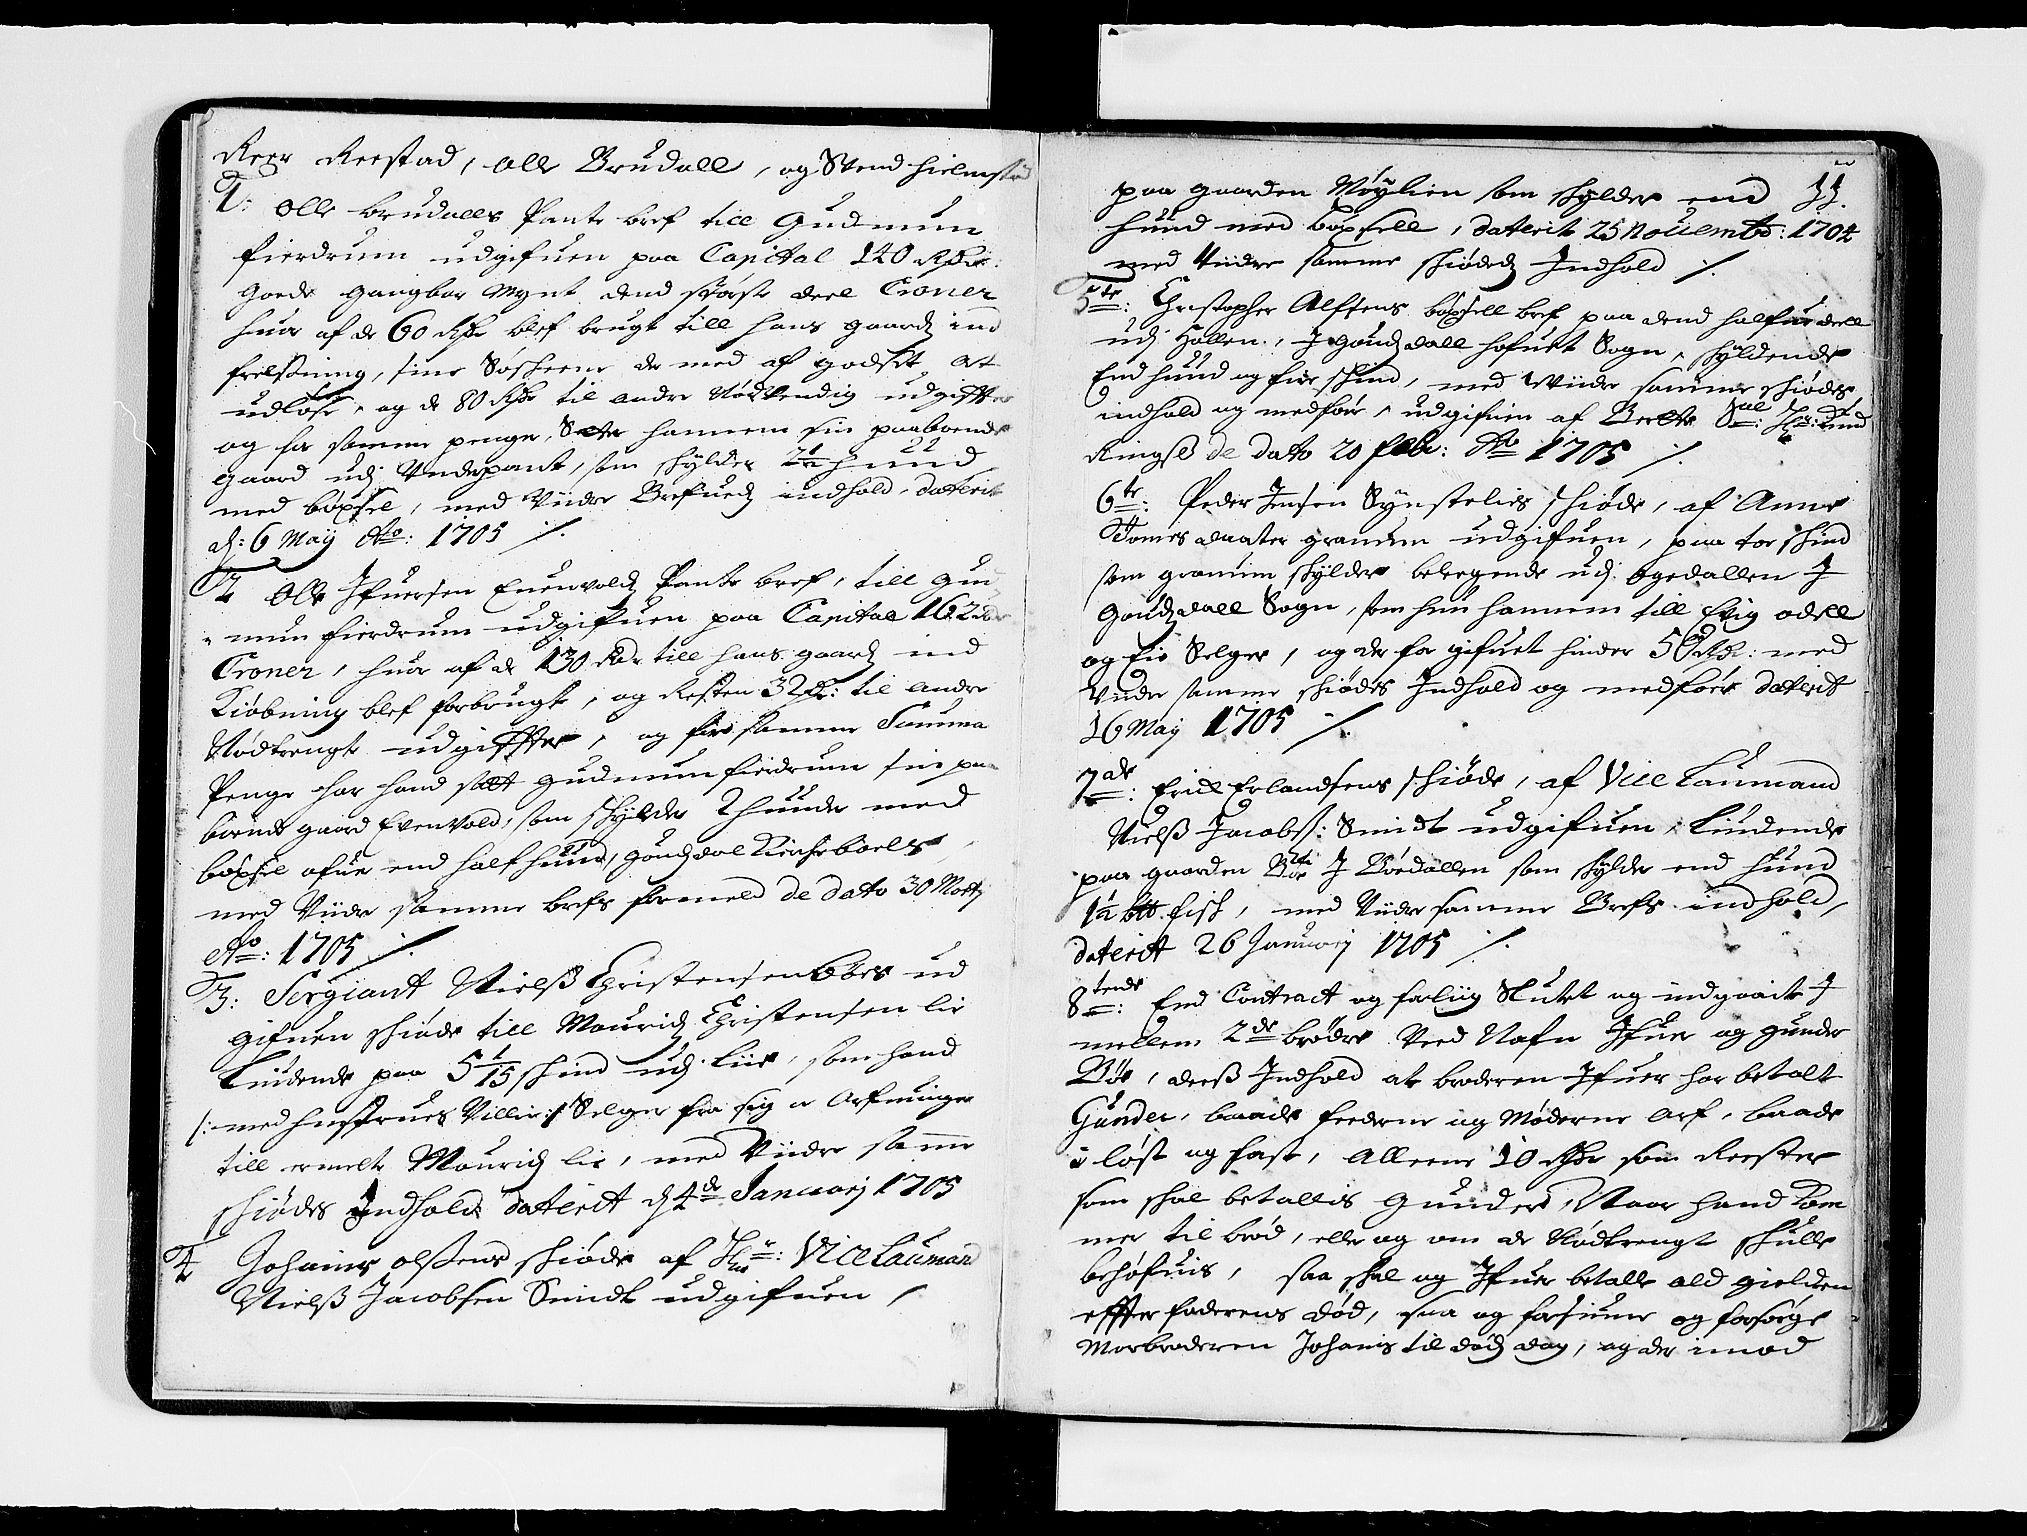 Reer Reestad, olle Brudall, og Stend hielmstad
1: Olle brudalls Pante bref till Gudmun
fierdrum udgifuen paa Capital 140 Rdr:
goede gangbar Mynt dend støрste deel Croner
huor af de 60 Rdr blef brugt till hans gaards ind
frelsning, sine Søskeene de med af godset at
udløse, og de 80 Rdr til andre Nødvendig udgiffter
og for samme penge, Setter hannem sin paaboende
gaard udj Underpant, som skylder 2½ huud
med böxsel, med Viidre Brefueds indhold, daterit
d: 6 Maij Ao: 1705 ./.
2 Olle Ifuersen Euenvolds Pante bref, till Gud
mun fierdrum udgifuen paa Capital 162 Rdr
Croner, huor af de 130 Rdr till hans gaards ind
Kiøbning blef forbrugt, og Resten 32 Rdr: til andre
Nødtrengte udgiffter, og for samme Summa
Penge har hand satt Gudmun fierdrum sin paa
boende gaard Evenvold, som skylder 2 huuder med
böxsel ofuer end half huud, Grudsdal Kirchebools
med Viidre samme brefs formeld de dato 30 Marts
Ao: 1705 ./.
3: Sergiant Nielss Christensen Böes ud
gifuen skiøde till Mourids Christensen lie
Liudende paa 5 1/15 skind udj lie, som hand
/: med hustrues Villie :/ Selger fra sig og Arfuinger
till ermelte Mourids lie, med Viidre samme
skiødes Indhold daterit d 4de Januarij 1705
4 Johannes olssens skiøde af Hr: Vice Laumand
Nielss Jacobsen Smidt udgifuen,
11.
paa gaarden Møylien som skylder end
huud med böxsell, daterit 25 Nouembr: 1704
med Viidre samme skiødes Indhold ./.
5te: Christopher Alfsens böxsell bref paa dend halfue deel
udj Hollen, I Grudsdall hofuet Sogn, skyldende
End huud og fire skind, med Viidre samme skiødes
indhold og medføre, udgifuen af Sal: Hr:
Rings de dato 20 febr: Ao 1705 ./.
6te: Peder Jensen Synstelies skiøde, af Anne
Tomesdaater gramem udgifuen, paa toe skind
som gramem skylder beleegende udj Ogedallen I
Grudsdall Sogn, som hun hannem till Evig odell
og Eie Selger, og der for gifuet hinder 50 Rdr: med
Viidre samme skiødes Indhold og medføer daterit
16 Maij 1705 ./.
7de: Erich Erlandsens skiøde, af Vice Laumand
Nielss Jacobss: Smidt udgifuen, Liudende
paa gaarden Böe I Böedallen som skylder end huud
1½ fisk, med Viidre samme Brefs indhold,
daterit 26 Januarij 1705 ./.
8tende: End Contract og forliig Sluttet og indgaait I
mellem 2de brødre Ved Nafn Ifuer og Gunder
Böe, derss Indhold at broderen Ifuer har betalt
Gunder, baade fæderne og Møderne Arf, baade
i løst og fast, Alleene 10 Rdr som Rester
som skal betallis Gunder, Naar hand kom
mer til brød, eller og om de Nødtrengt skulle
behøfuis, saa skal og Ifuer betalle ald gielden
effter faderens død, saa og forsiune og forsørge
Morbroderen Johans til døds dag, og der imod